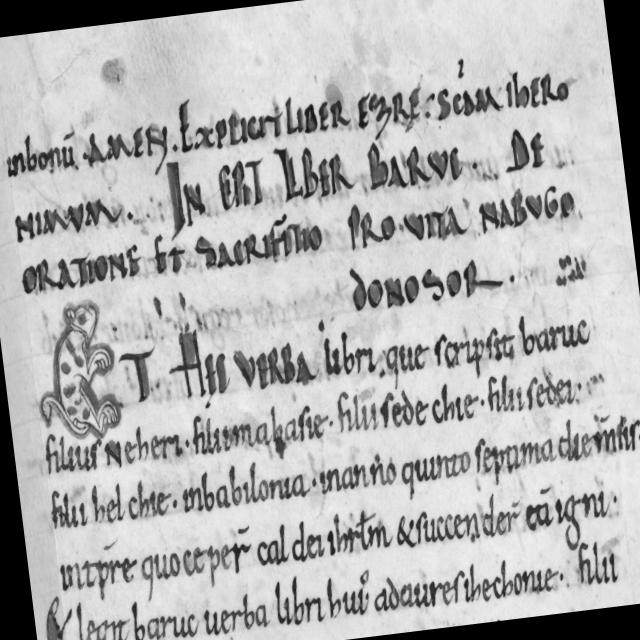 inbonū. AMEN. Explicit LIBER EZRE. Scdm ibero
nimum. IN CIPIT LIBER BARUC DE
ORATIONE ET SACRIFITIO PRO VITA NABUGO
DONOSOR
ET HEC VERBA libri que scripsit baruc
filius Neheri. filii maasie. filii sede chie. filii sedei.
filii hel chie. inbabilonia. in anno quinto septima die mīsis.
intp̄re quo ceper̄ cal dei ihrlm̄ & succender̄ eā igni.
legit baruc uerba libri hui' adaures iechonie. filii